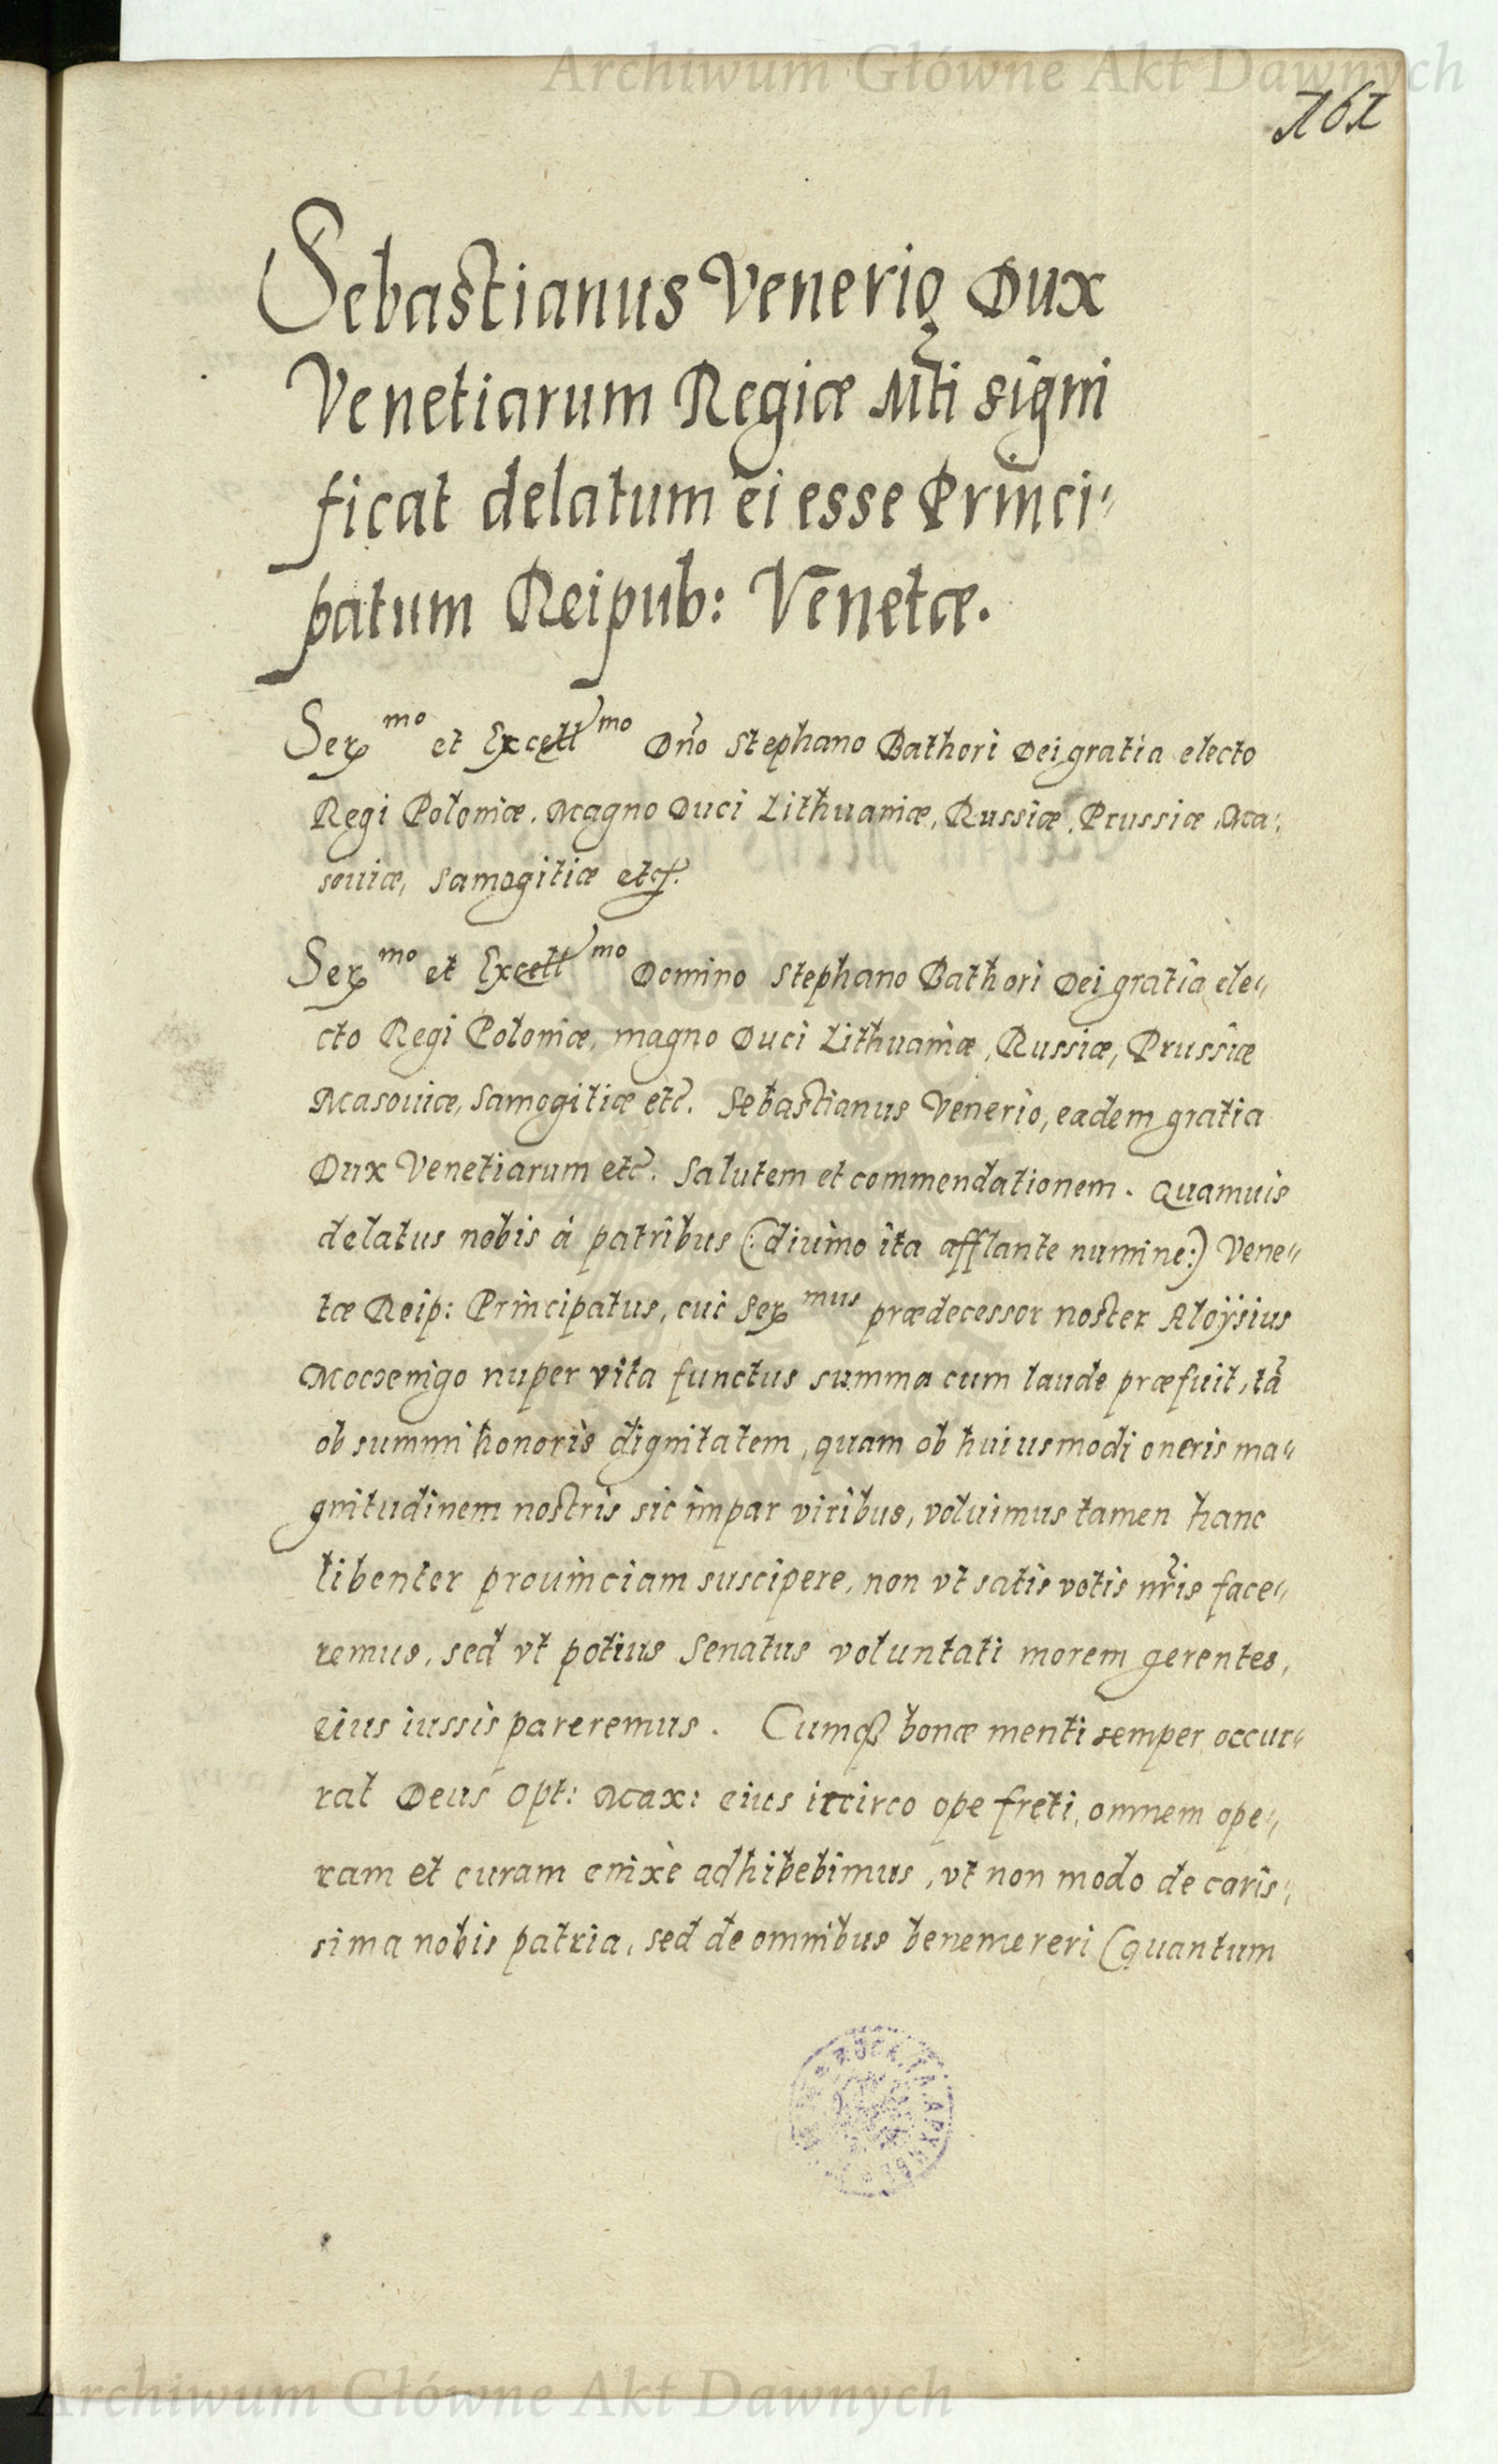 Archiwum Główne Akt Dawnych
161
Sebastianus Venerio Dux
Venetiarum Regiæ Mti signi
ficat delatum ei esse Princi-
patum Reipub: Venetæ.
Ser mo et Excell mo Dno Stephano Bathori Dei gratia electo
Regi Poloniæ, Magno Duci Lithuaniæ, Russiæ, Prussiæ, Ma-
souiæ, Samogitiæ etc.
Ser mo et Excell mo Domino Stephano Bathori Dei gratia ele-
cto Regi Poloniæ, magno Duci Lithuaniæ, Russiæ, Prussiæ
Masouiæ, Samogitiæ etc. Sebastianus Venerio, eadem gratia
Dux Venetiarum etc. Salutem et commendationem. Quamuis
delatus nobis á patribus (: diuino ita afflante numine:) Vene-
tæ Reip: Principatus, cui Ser mus prædecessor noster Aloÿsius
Mocenigo nuper vita functus summa cum laude præfuit, tã
ob summi honoris dignitatem, quam ob huiusmodi oneris ma-
gnitudinem nostris sic impar viribus, voluimus tamen hanc
libenter prouinciam suscipere, non vt satis votis nris face-
remus, sed vt potius Senatus voluntati morem gerentes,
eius iussis pareremus. Cumq3 bonæ menti semper occur-
rat Deus Opt: Max: eius iccirco ope freti, omnem ope-
ram et curam enixè adhibebimus, vt non modo de caris-
sima nobis patria, sed de omnibus benemereri (quantum
Archiwum Główne Akt Dawnych